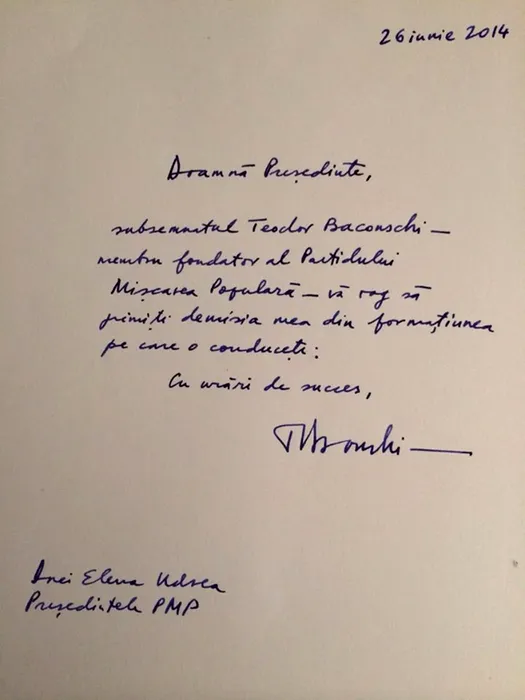 26 iunie 2014
Doamnă Președinte,
subsemnatul Teodor Baconschi —
membru fondator al Partidului
Mișcarea Populară — vă rog să
primiți demisia mea din formațiunea
pe care o conduceți:
Cu urări de succes,
TBaconschi —
Dnei Elena Udrea
Președintele PMP